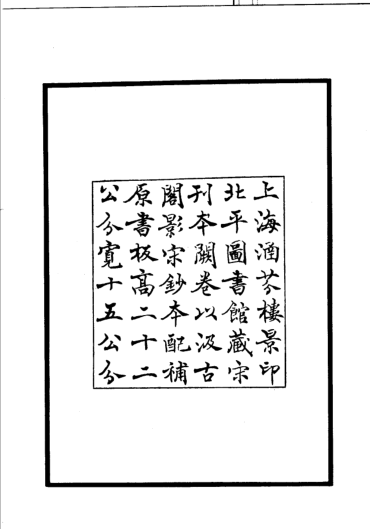 上海涵芬樓景印
北平圖書館藏宋
刊本闕卷以汲古
閣影宋鈔本配補
原書板高二十二
公分寬十五公分